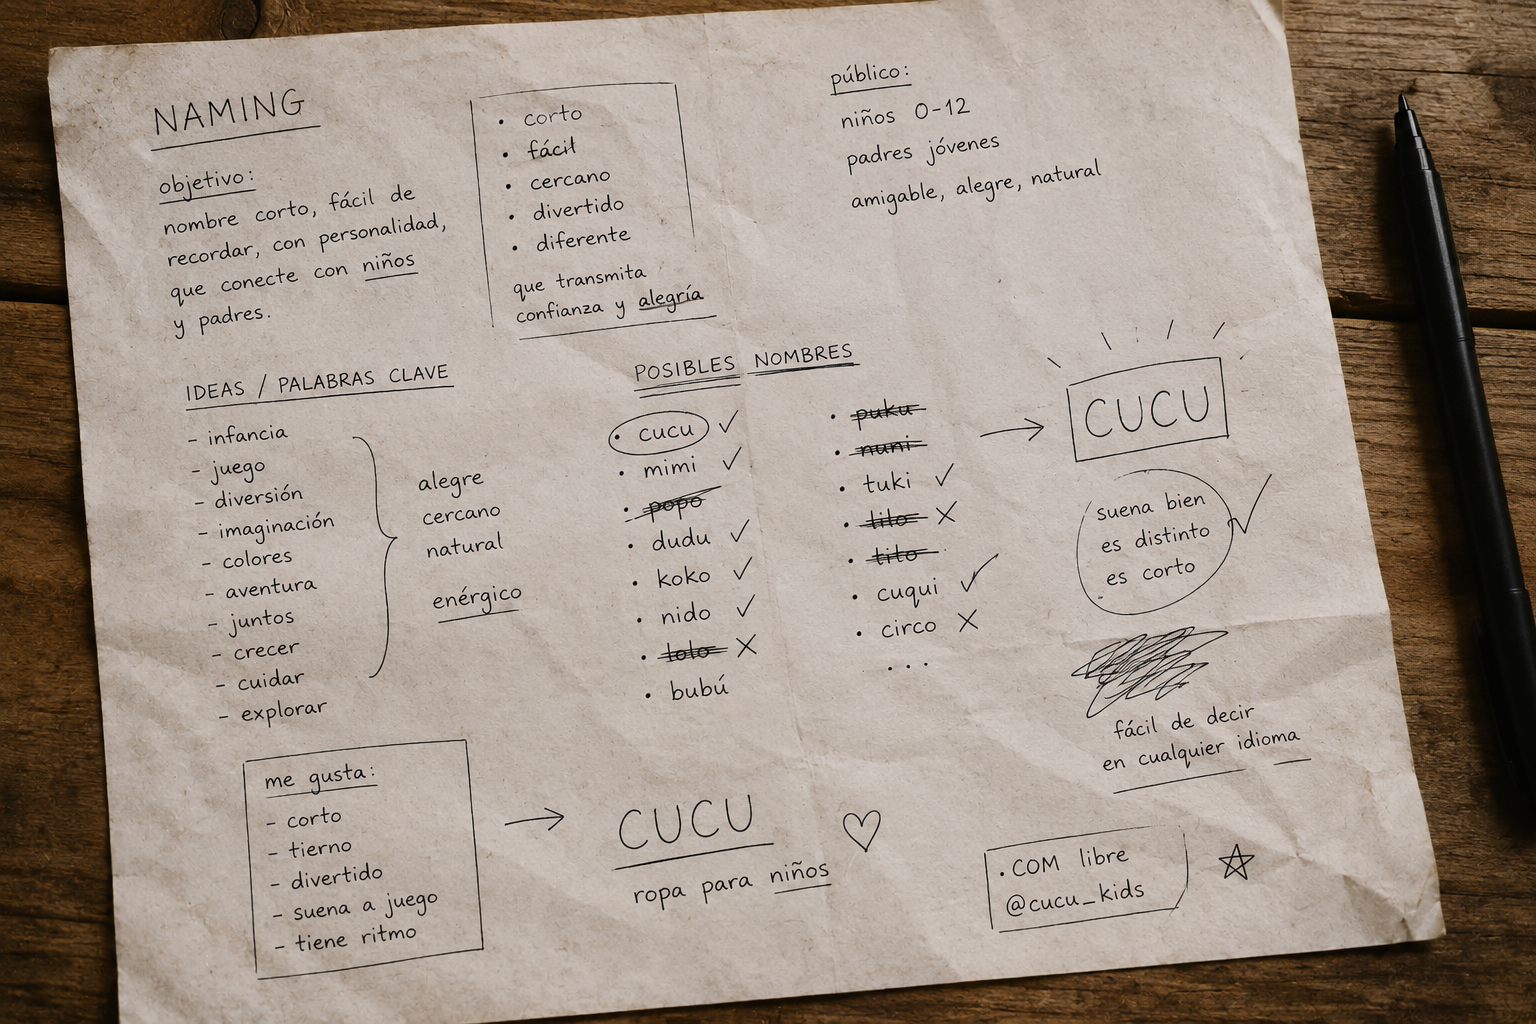 NAMING
objetivo:
nombre corto, fácil de
recordar, con personalidad,
que conecte con niños
y padres.
• corto
• fácil
• cercano
• divertido
• diferente
que transmita
confianza y alegría
público:
niños 0-12
padres jóvenes
amigable, alegre, natural
IDEAS / PALABRAS CLAVE
- infancia
- juego
- diversión
- imaginación
- colores
- aventura
- juntos
- crecer
- cuidar
- explorar
alegre
cercano
natural
enérgico
POSIBLES NOMBRES
• cucu ✓
• mimi ✓
• popo
• dudu ✓
• koko ✓
• nido ✓
• lolo ✗
• bubú
• puku
• nuni
• tuki ✓
• lilo ✗
• tito
• cuqui ✓
• circo ✗
...
→ CUCU
suena bien
es distinto
es corto
✓
fácil de decir
en cualquier idioma
me gusta:
- corto
- tierno
- divertido
- suena a juego
- tiene ritmo
→ CUCU ♡
ropa para niños
.COM libre
@cucu_kids
☆